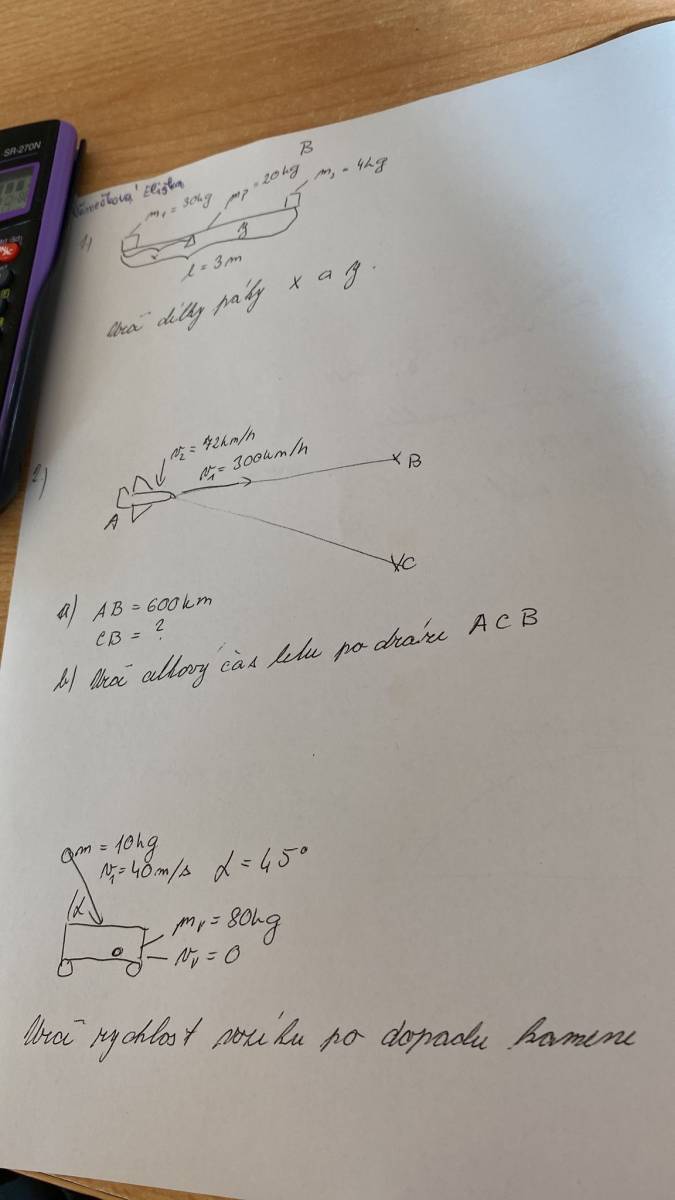 SR-270N
B
1)
m₁ = 30kg
mₚ = 20kg
m₂ = 4kg
x
y
l = 3m
Urči délky páky x a y.
2)
v₂ = 72km/h
v₁ = 300km/h
A
B
C
a) AB = 600km
CB = ?
b) Urči celkový čas letu po dráze ACB
m = 10kg
v₁ = 40m/s α = 45°
α
mᵥ = 80kg
vᵥ = 0
Urči rychlost vozíku po dopadu kamene